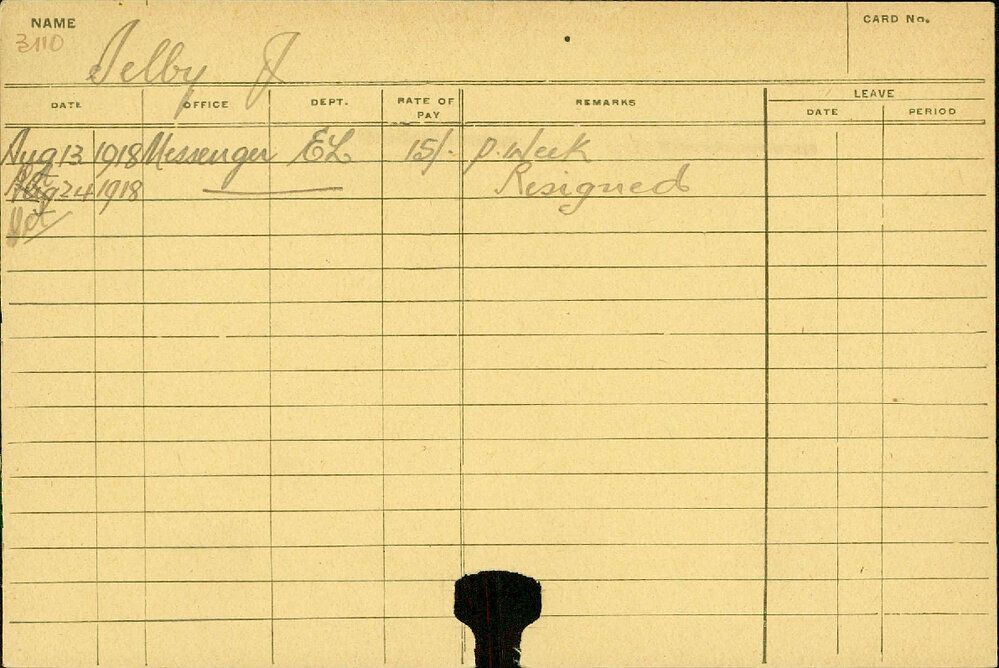 NAME
CARD No.
3110
Selby J
DATE
OFFICE
DEPT.
RATE OF PAY
REMARKS
LEAVE
DATE
PERIOD
Aug 13 1918 Messenger EL 15/- p. week
Aug 24 1918 Resigned
Oct